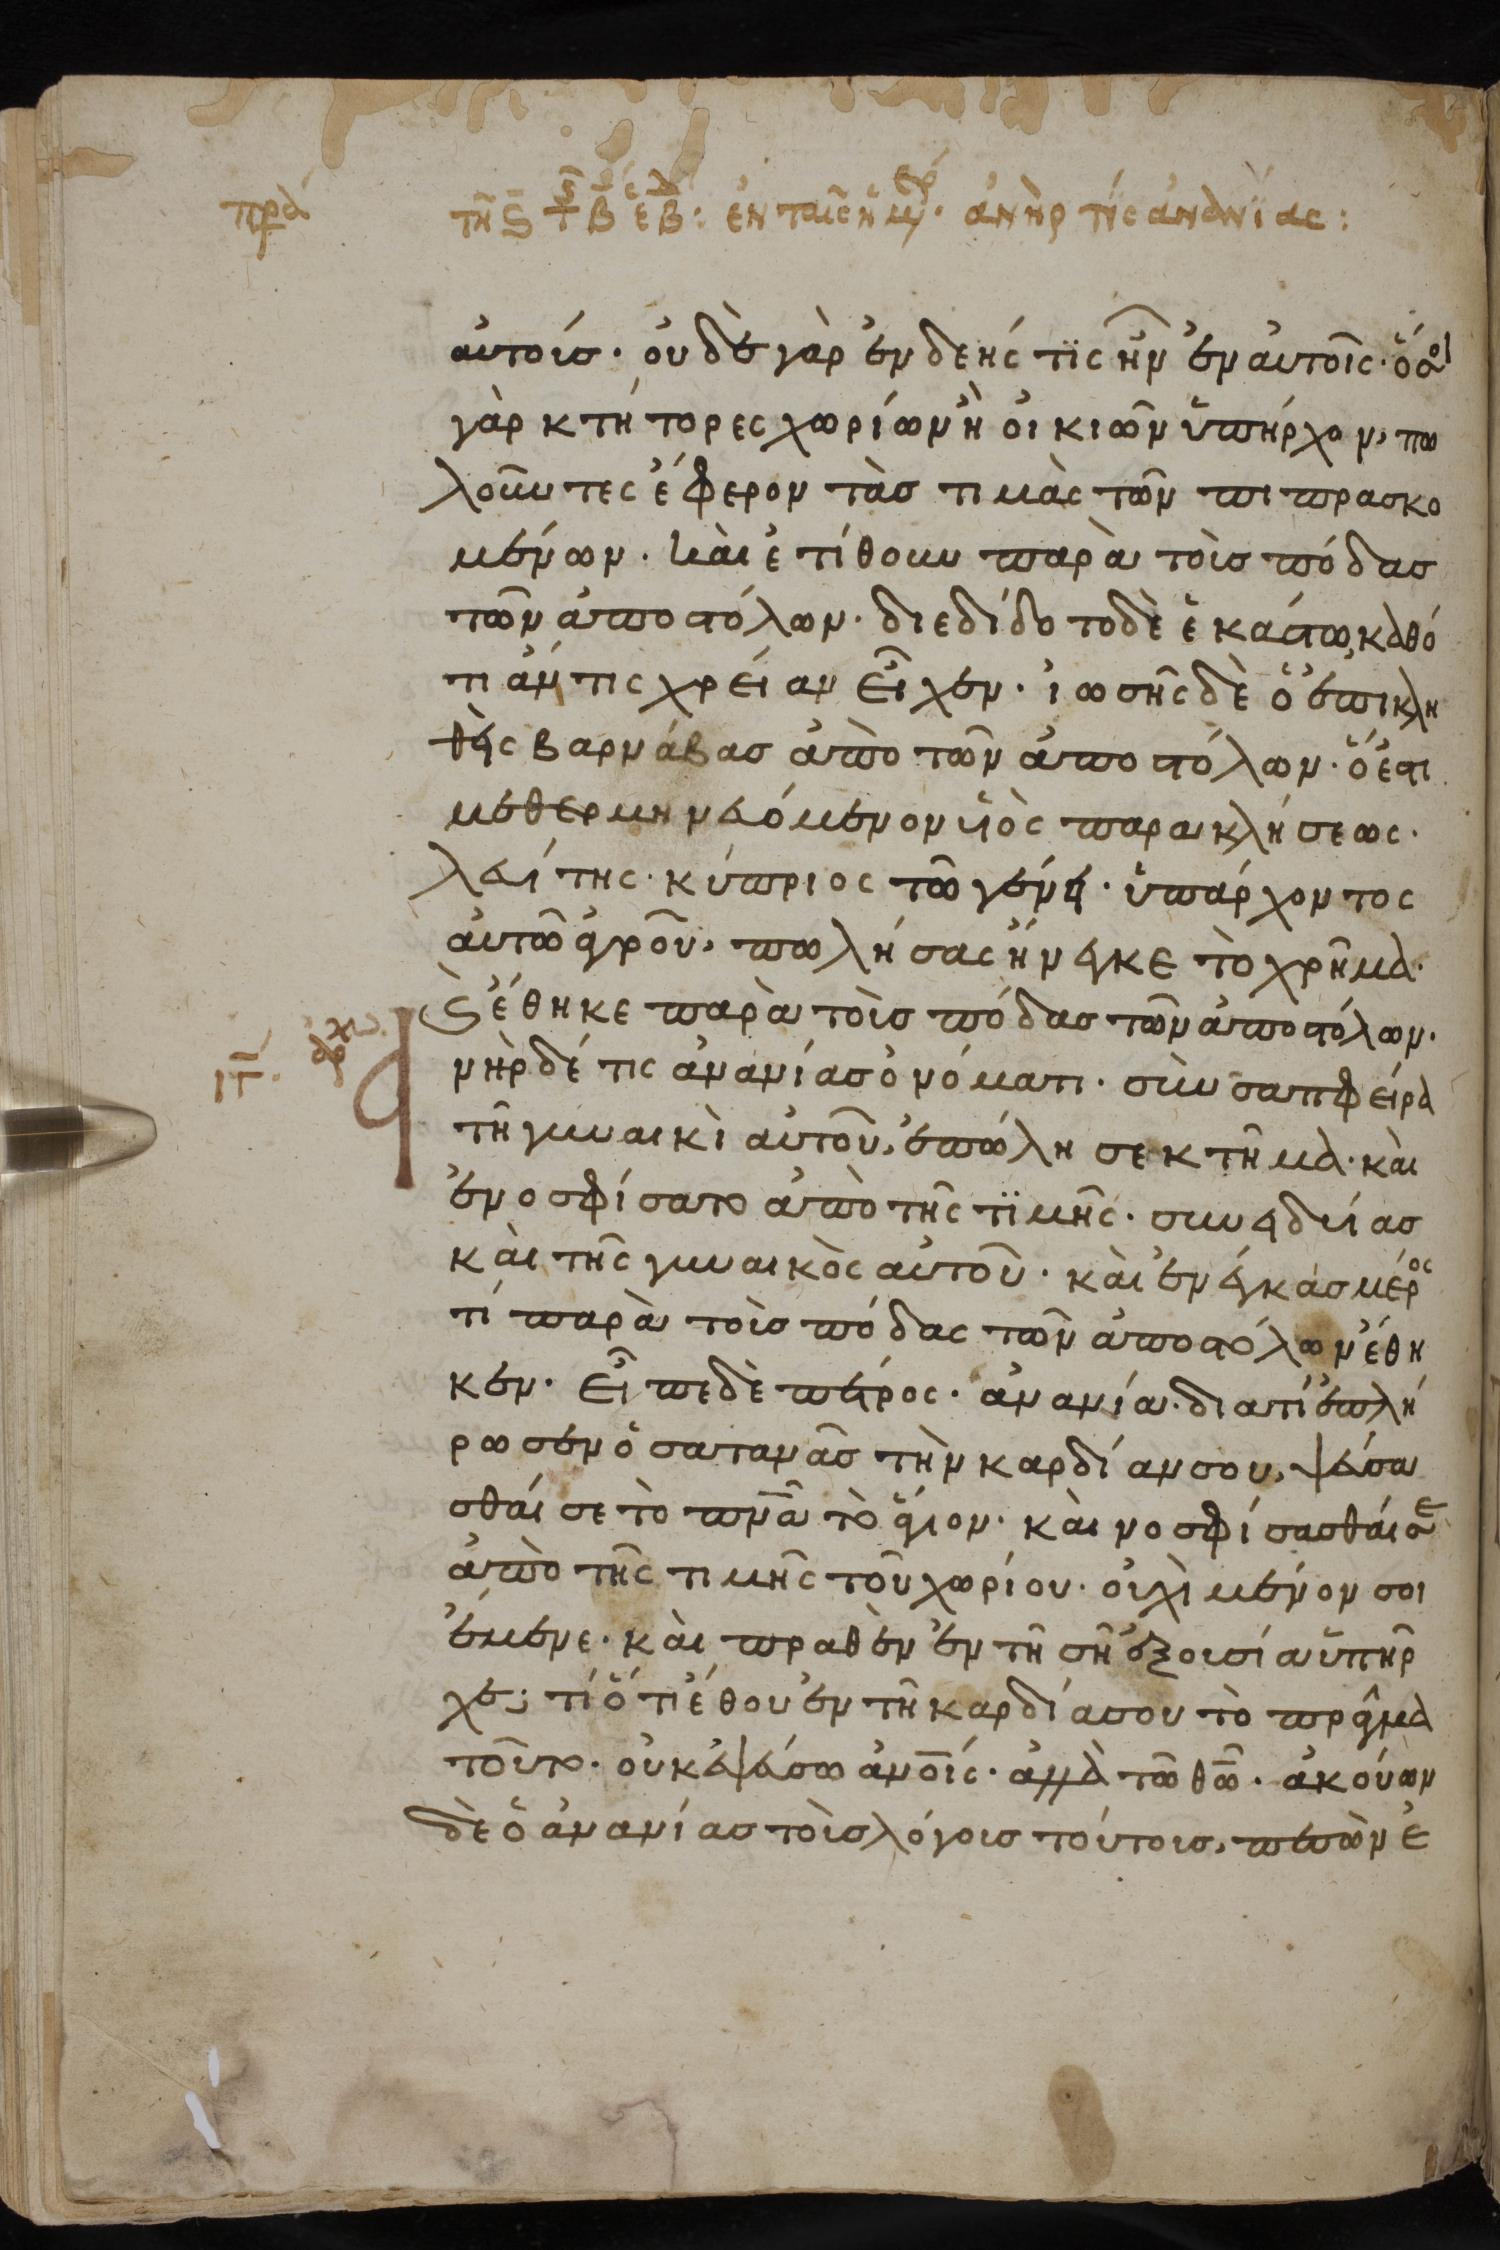 πρα
τῇ ϛ τ̅ β̅ ἑβ: ἐν ταῖς ἡμ· ἀνήρ τίς ἀνανΐας:
αὐτούσ· οὐδὲ γὰρ ἐνδεής τϊς ἦν ἐν αὐτοῖς· ὅσοι
γὰρ κτήτορες χωρίων ἢ οἰκιῶν ὑπῆρχον, πω
λοῦντες ἔφερον τὰσ τιμὰς τῶν πιπρασκο
μένων. καὶ ἐτίθουν παρὰ τοὺσ πόδασ
τῶν ἀποστόλων· διεδίδοτο δὲ ἑκάστω, καθό
τι ἄν τις χρείαν εἶχεν· ἰωσῆς δὲ ὁ ἐπικλη
θεὶς βαρνάβασ ἀπὸ τῶν ἀποστόλων· ὅ ἐστι
μεθερμηνευόμενον υἱὸς παρακλήσεως·
λευίτης· κύπριος τῶ γένει· ὑπάρχοντος
αὐτῶ ἀγροῦ, πωλήσας ἤνεγκε τὸ χρῆμα·
ϛ ἔθηκε παρὰ τοὺσ πόδασ τῶν ἀποστόλων·
ιγ̅· ἀρχ
ἀνὴρ δέ τις ἀνανίασ ὀνόματι· σὺν σαπφείρα
τῆ γυναικὶ αὐτοῦ, ἐπώλησε κτῆμα· καὶ
ἐνοσφίσατο ἀπὸ τῆς τϊμῆς· συνειδυίασ
καὶ τῆς γυναικὸς αὐτοῦ· καὶ ἐνέγκασ μέρος
τί παρὰ τοὺσ πόδας τῶν ἀποστόλων ἔθη
κεν· εἶπε δὲ πέτρος· ἀνανία· διατί ἐπλή
ρωσεν ὁ σατανᾶσ τὴν καρδίαν σου, ψεύσα
σθαί σε τὸ πνᾶ τὸ ἅγιον· καὶ νοσφίσασθαί σε
ἀπὸ τῆς τιμῆς τοῦ χωρίου· οὐχὶ μένον σοι
ἔμενε· καὶ πραθὲν ἐν τῆ σῆ ἐξουσία ὑπῆρ
χε; τί ὅτι ἔθου ἐν τῆ καρδία σου τὸ πρᾶγμα
τοῦτο· οὐκ ἐψεύσω ἀνοῖς· ἀλλὰ τῶ θῶ· ἀκούων
δὲ ὁ ἀνανίασ τοὺσ λόγουσ τούτουσ, πεσὼν ἐ